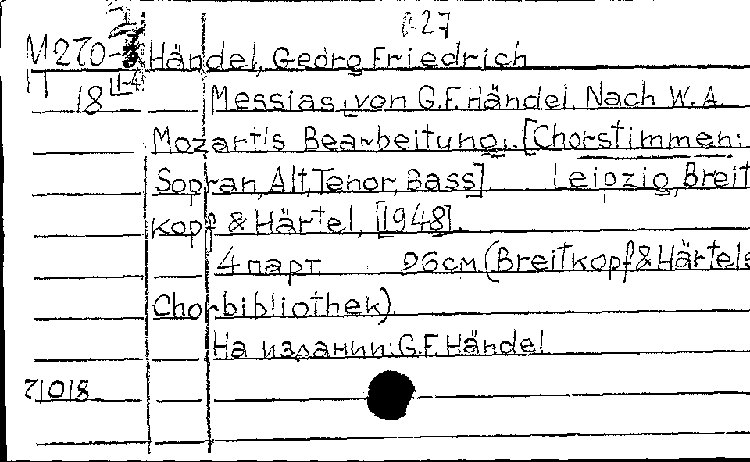 827
M270- Händel, Georg Friedrich
18 1-4 Messias, von G.F. Händel. Nach W. A.
Mozart's Bearbeitung. [Chorstimmen:
Sopran, Alt, Tenor, Bass] Leipzig, Breit
kopf & Härtel, [1948].
4 парт. 26см (Breitkopf & Härtels
Chorbibliothek)
На издании: G.F. Händel
71018